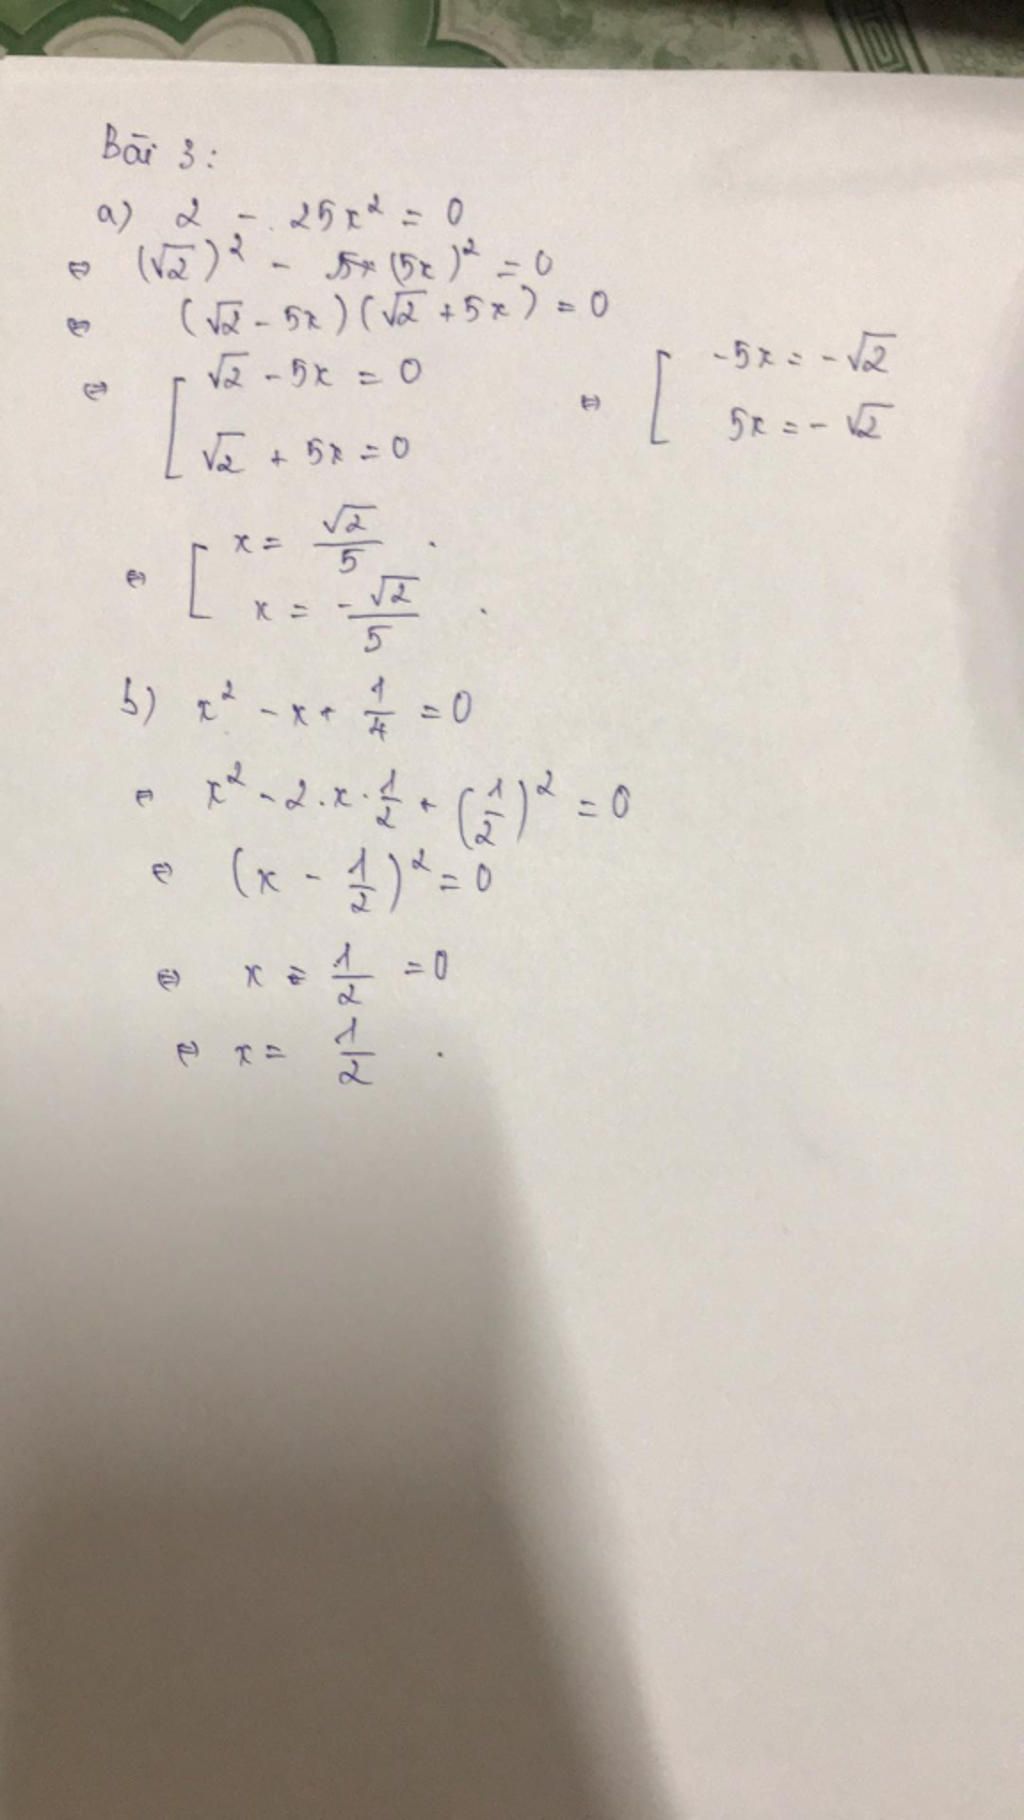 Bài 3:
a) 2 - 25x² = 0
⇔ (√2)² - (5x)² = 0
⇔ (√2 - 5x)(√2 + 5x) = 0
⇔ [ √2 - 5x = 0
√2 + 5x = 0
⇔ [ -5x = -√2
5x = -√2
⇔ [ x = √2/5 .
x = -√2/5 .
b) x² - x + 1/4 = 0
⇔ x² - 2.x.1/2 + (1/2)² = 0
⇔ (x - 1/2)² = 0
⇔ x = 1/2 = 0
⇔ x = 1/2 .